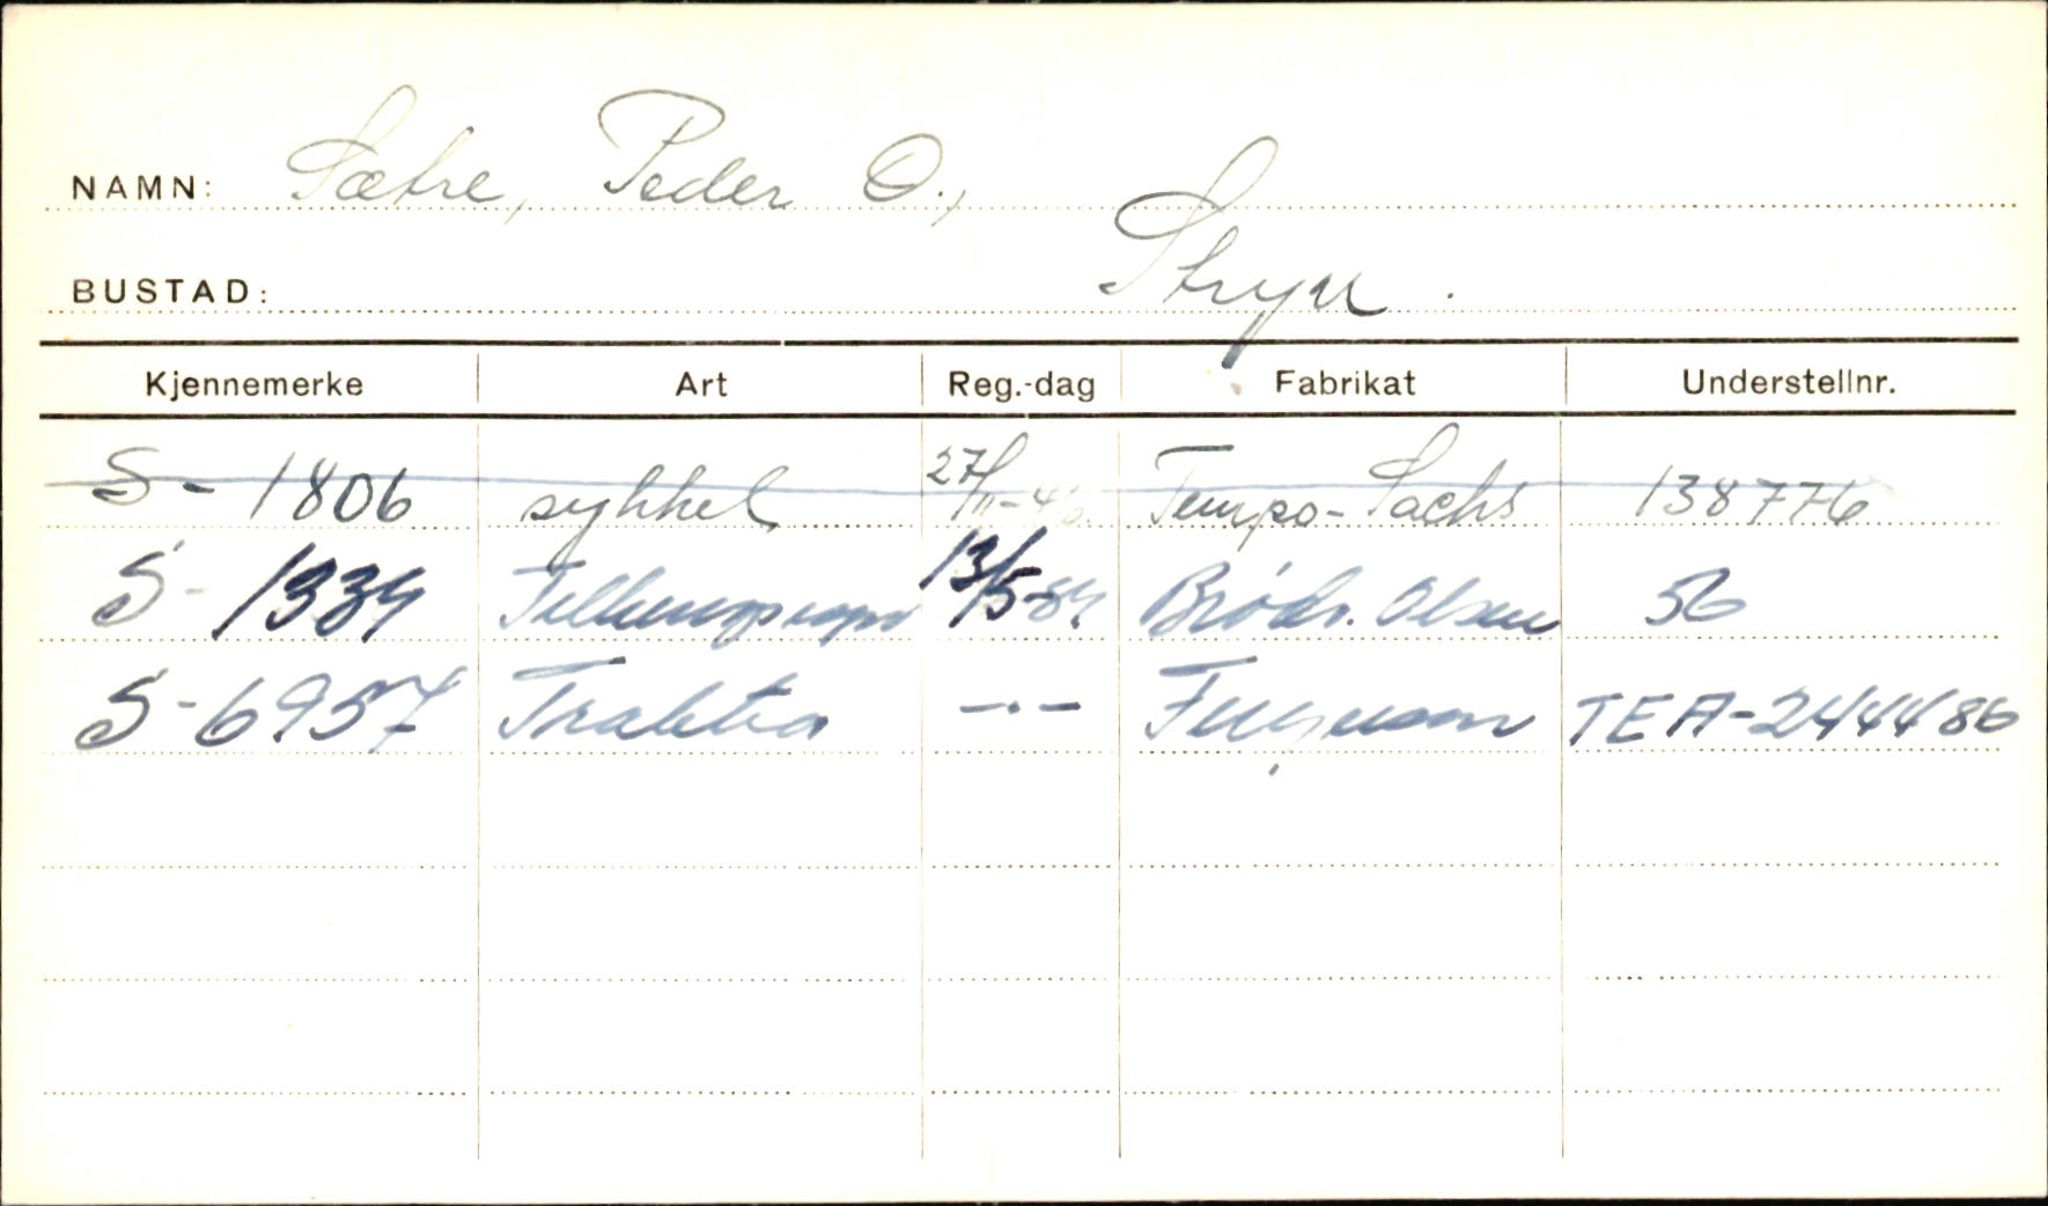 NAMN: Sætre, Peder O.,
BUSTAD: Stryn.
Kjennemerke Art Reg.-dag Fabrikat Understellnr.
S-1806 sykkel 27/11-46 Tempo-Sachs 138776
S-1934 13/5-54 Brødr. Olsen 56
S-6957 Traktor -"- Ferguson TEA-244486